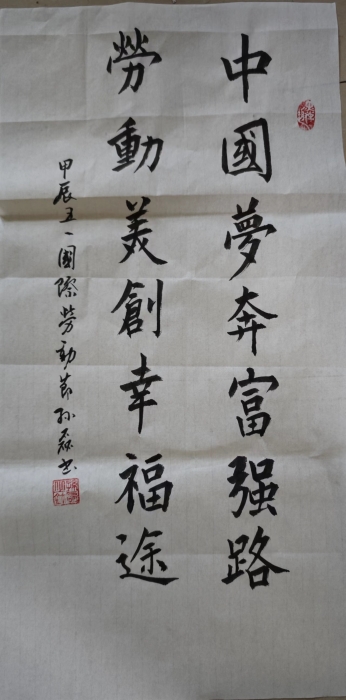 中國夢奔富强路
勞動美創幸福途
甲辰五一國際勞動節孙磊书